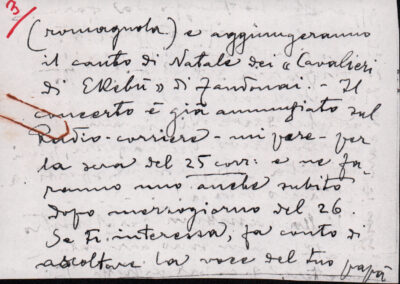 3/
(romagnola.) e aggiungeranno
il canto di Natale dei "Cavalieri
di Ekebù" di Zandonai. - Il
concerto è già annunziato sul
Radio-corriere - mi pare - per
la sera del 25 corr: e ne fa-
ranno uno anche subito
dopo mezzogiorno del 26.
Se ti interessa, fa conto di
ascoltare la voce del tuo papà